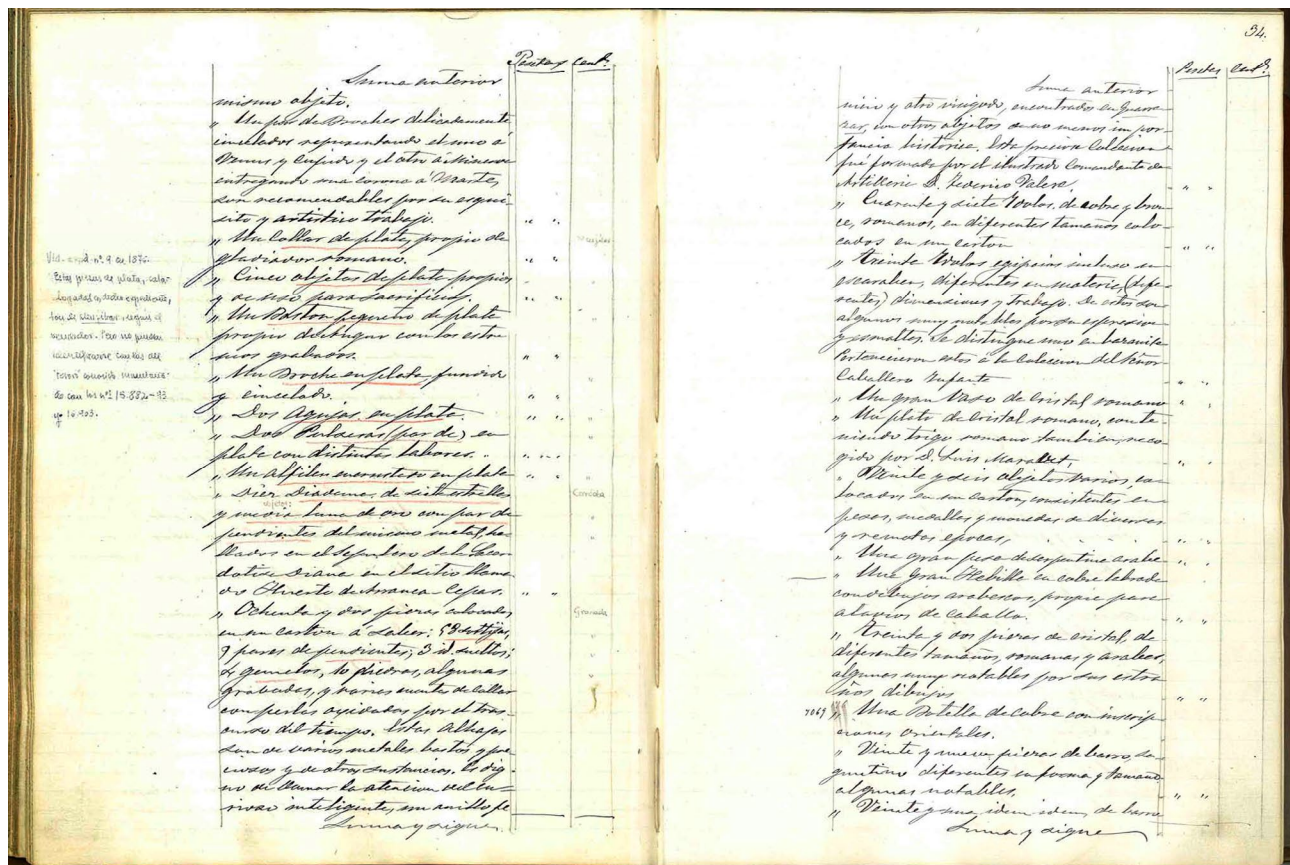 Pesetas Cent.s
Suma anterior
mismo objeto.
" Un par de Broches delicadamente
cincelados representando el uno á
Venus y Cupido y el otro á Minerva
entregando una corona á Marte,
son recomendables por su esqui-
sito y artistico trabajo.
" Un Collar de plata, propio de
gladiador romano.
" Cinco objetos de plata propios
y de uso para sacrificios.
" Un Baston pequeño de plata
propio de con los estre-
mos grabados.
" Un Broche en plata, fundido
y cincelado.
" Dos Agujas en plata.
" Dos Pulseras (par de) en
plata con distintas labores.
" Un alfiler en plata
" Diez Diademas, de siete estrellas
objetos:
y media luna de oro con par de
pendientes del mismo metal, ha-
llados en el Sepulcro de la Sacer-
dotisa Diana en el sitio llama-
do Huerto de Arranca Cepas.
" Ochenta y dos piezas colocadas
en un carton á saber: 58 sortijas,
9 pares de pendientes; 3 id. sueltos;
2 gemelos, 10 piedras, algunas
grabadas, y varias cuentas de collar
con perlas oxidadas por el tras-
curso del tiempo. Estas Alhajas
son de varios metales bastos y pre-
ciosos y de otras sustancias. Es dig-
no de llamar la atencion del cu-
rioso inteligente, un anillo fe
Suma y sigue
Vid. exped. nº. 9 de 1876.
Estas piezas de plata, cata-
logadas en dicho expediente,
son de , según el
vendedor. Pero no pueden
identificarse con las del
"tesoro" conocido inventaria-
do con los nos. 15.882-93
y 16.903.
Córdoba
Granada
34.
Pesetas Cent.s
Suma anterior
nicio y otro visigodo, encontrados en Guarra-
zar, con otros objetos de no menos impor-
tancia histórica. Esta preciosa Coleccion
fué formada por el ilustrado Comandante de
Artilleria D. Federico Valera.
" Cuarenta y siete Idolos, de cobre y bron-
ce, romanos, en diferentes tamaños colo-
cados en un carton
" Treinta Idolos egipcios incluso un
escarabeo, diferentes en materia, (dife-
rentes) dimensiones y trabajo. De estos son
algunos muy notables por su espresion
y esmaltes. Se distingue uno en
Pertenecieron estos á la Coleccion del Señor
Caballero Infante
" Un gran Vaso de cristal romano
" Un plato de cristal romano, conte-
niendo trigo romano tambien, reco-
gido por D. Luis Maraver,
" Veinte y seis objetos varios, co-
locados en un carton, consistentes en
pesas, medallas y monedas de diversas
y remotas epocas,
" Una gran pesa de serpentina arabe
" Una Gran Hebilla en cobre labrado
con dibujos arabescos, propia para
atavios de caballo.
" Treinta y dos piezas de cristal, de
diferentes tamaños, romanas y arabes,
algunas muy notables por sus estra-
ños dibujos
7069 " Una Botella de cobre con inscrip-
ciones orientales.
" Veinte y nueve piezas de barro, sa-
guntino diferentes en forma y tamaño
algunas notables,
" Veinte y una, idem idem, de barro
Suma y sigue